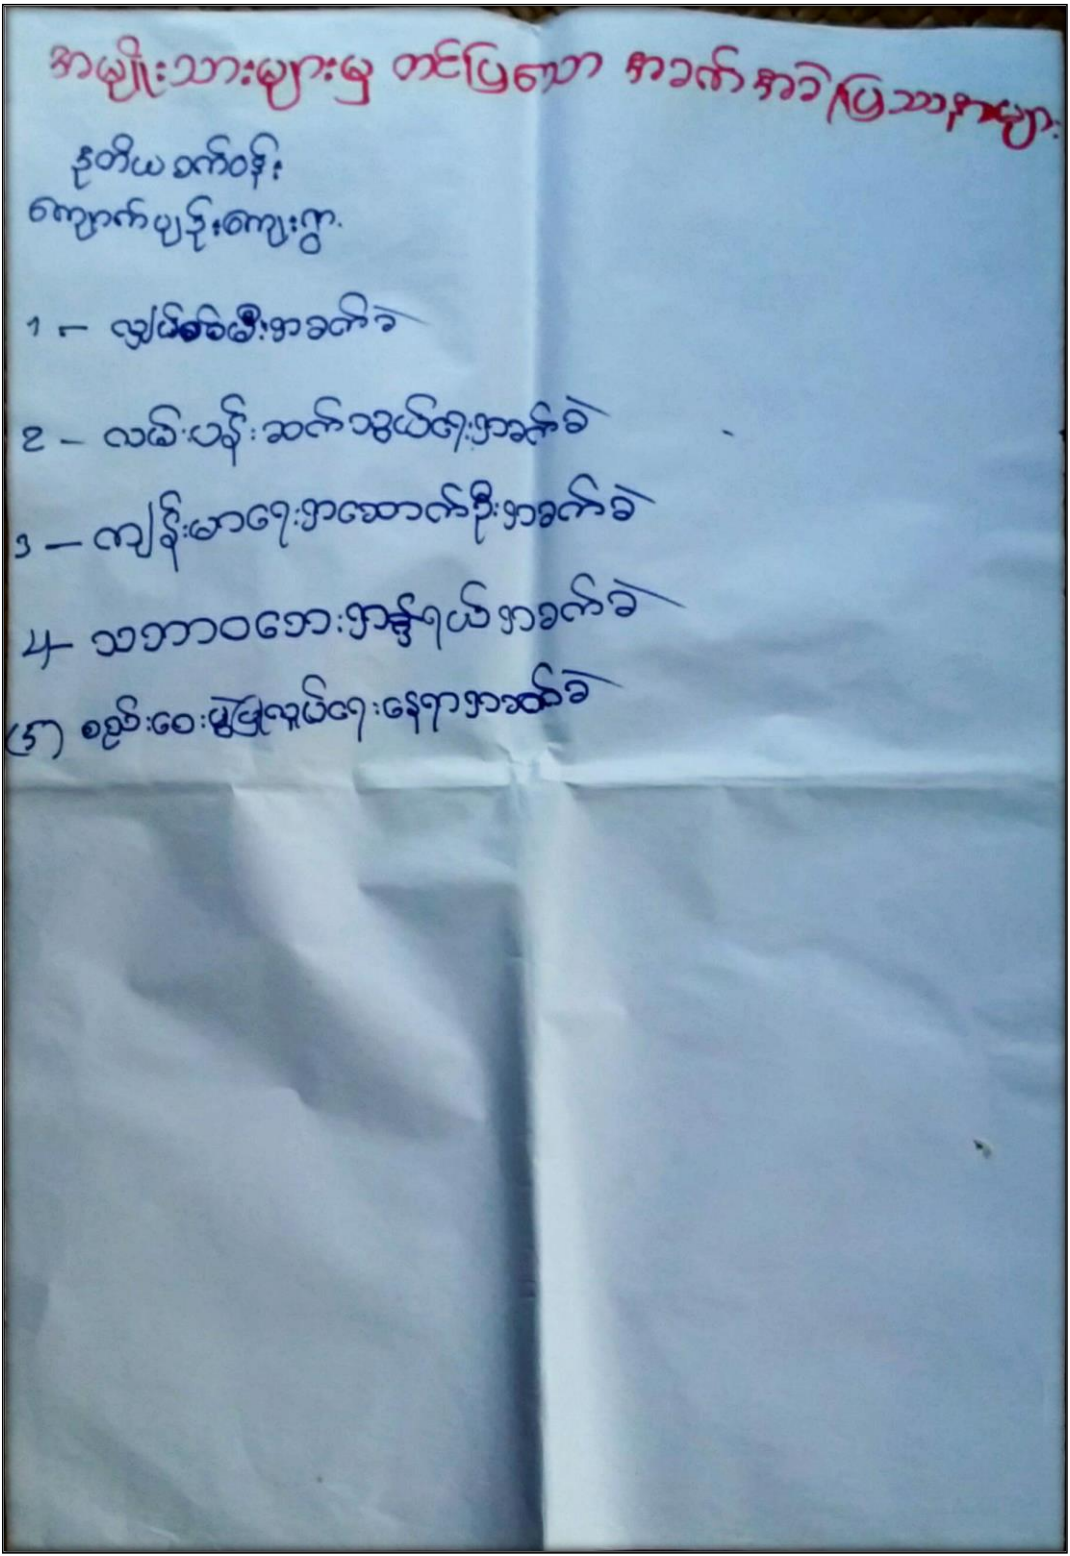 အမျိုးသားများမှ တင်ပြသော အခက်အခဲ ပြဿနာများ
ဒုတိယစက်ဝန်း
ကျောက်ပျဉ်းကျေးရွာ
1 - လျှပ်စစ်မီးအခက်ခဲ
2 - လမ်းပန်းဆက်သွယ်ရေးအခက်ခဲ
3 - ကျန်းမာရေးအဆောက်ဦးအခက်ခဲ
4 - သဘာဝဘေးအန္ဒရယ်အခက်ခဲ
(5) စည်းဝေးပွဲပြုလုပ်ရေးနေရာအခတ်ခဲ